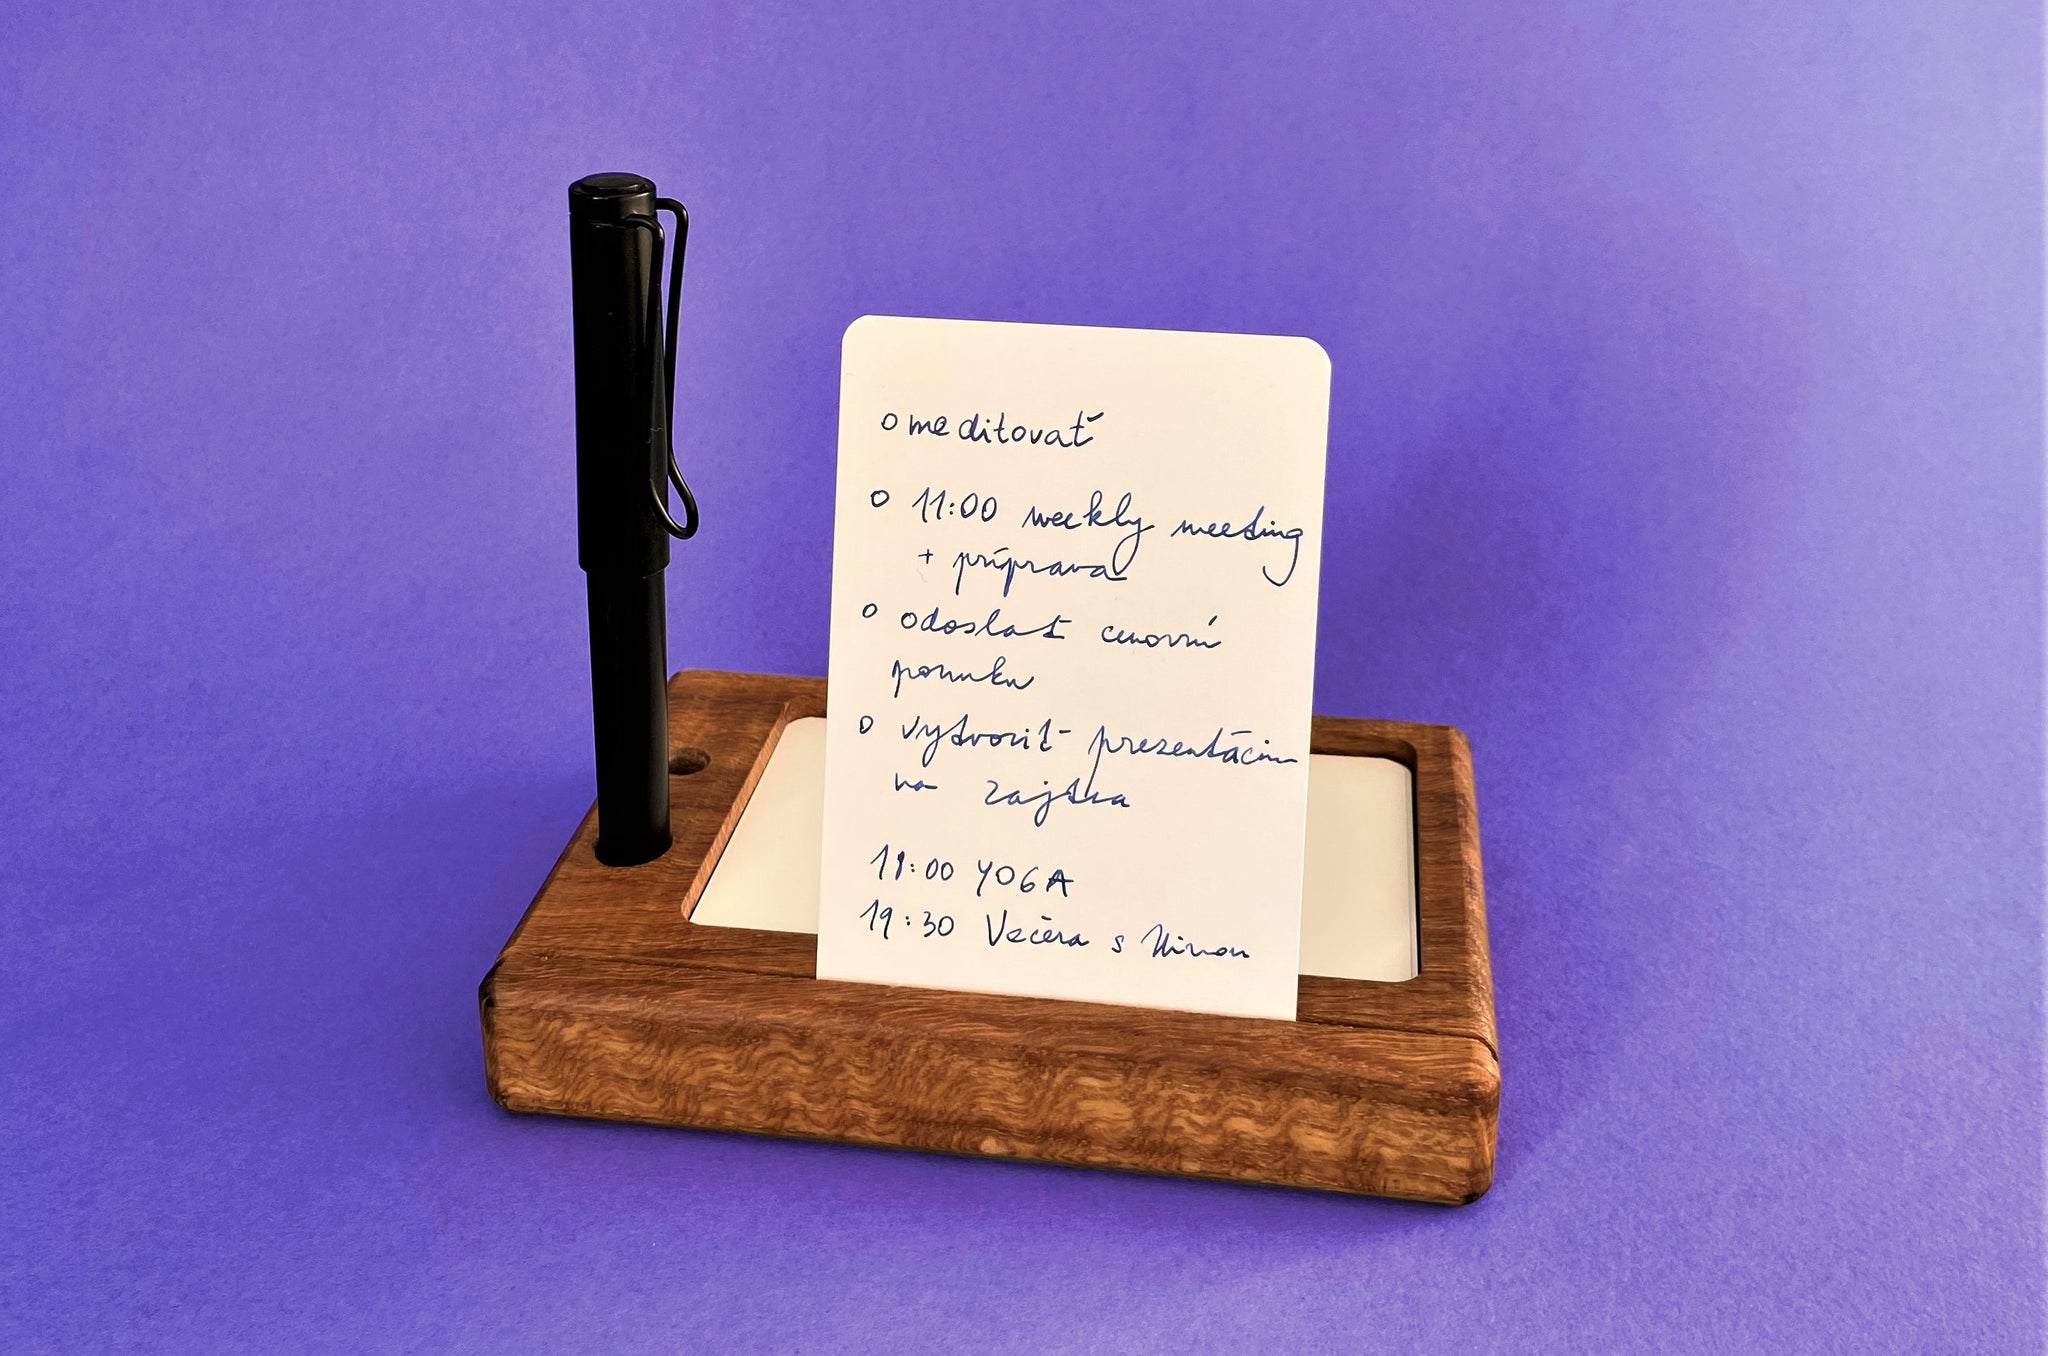 o meditovať
o 11:00 weekly meeting
+ príprava
o odoslať cenovú
ponuku
o vytvoriť prezentáciu
na zajtra
18:00 YOGA
19:30 Večera s Ninou